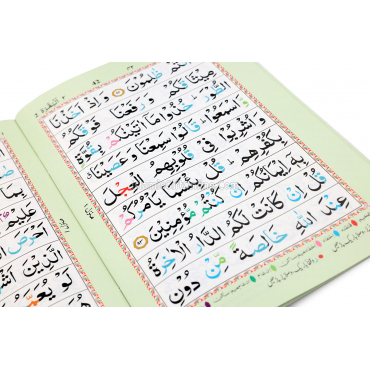 ظٰلِمُوْنَ ﴿۹۲﴾ وَ اِذْ اَخَذْنَا
مِیْثَاقَكُمْ وَ رَفَعْنَا فَوْقَكُمُ
الطُّوْرَ ؕ خُذُوْا مَاۤ اٰتَیْنٰكُمْ بِقُوَّةٍ
وَّ اسْمَعُوْا ؕ قَالُوْا سَمِعْنَا وَ عَصَیْنَا ۗ
وَ اُشْرِبُوْا فِیْ قُلُوْبِهِمُ الْعِجْلَ
بِكُفْرِهِمْ ؕ قُلْ بِئْسَمَا یَاْمُرُكُمْ
بِهٖۤ اِیْمَانُكُمْ اِنْ كُنْتُمْ مُّؤْمِنِیْنَ ﴿۹۳﴾
قُلْ اِنْ كَانَتْ لَكُمُ الدَّارُ الْاٰخِرَةُ
عِنْدَ اللّٰهِ خَالِصَةً مِّنْ دُوْنِ
بِمَا
عَلِیْمٌۢ
الَّذِیْنَ
لَوْ یُعَمَّرُ